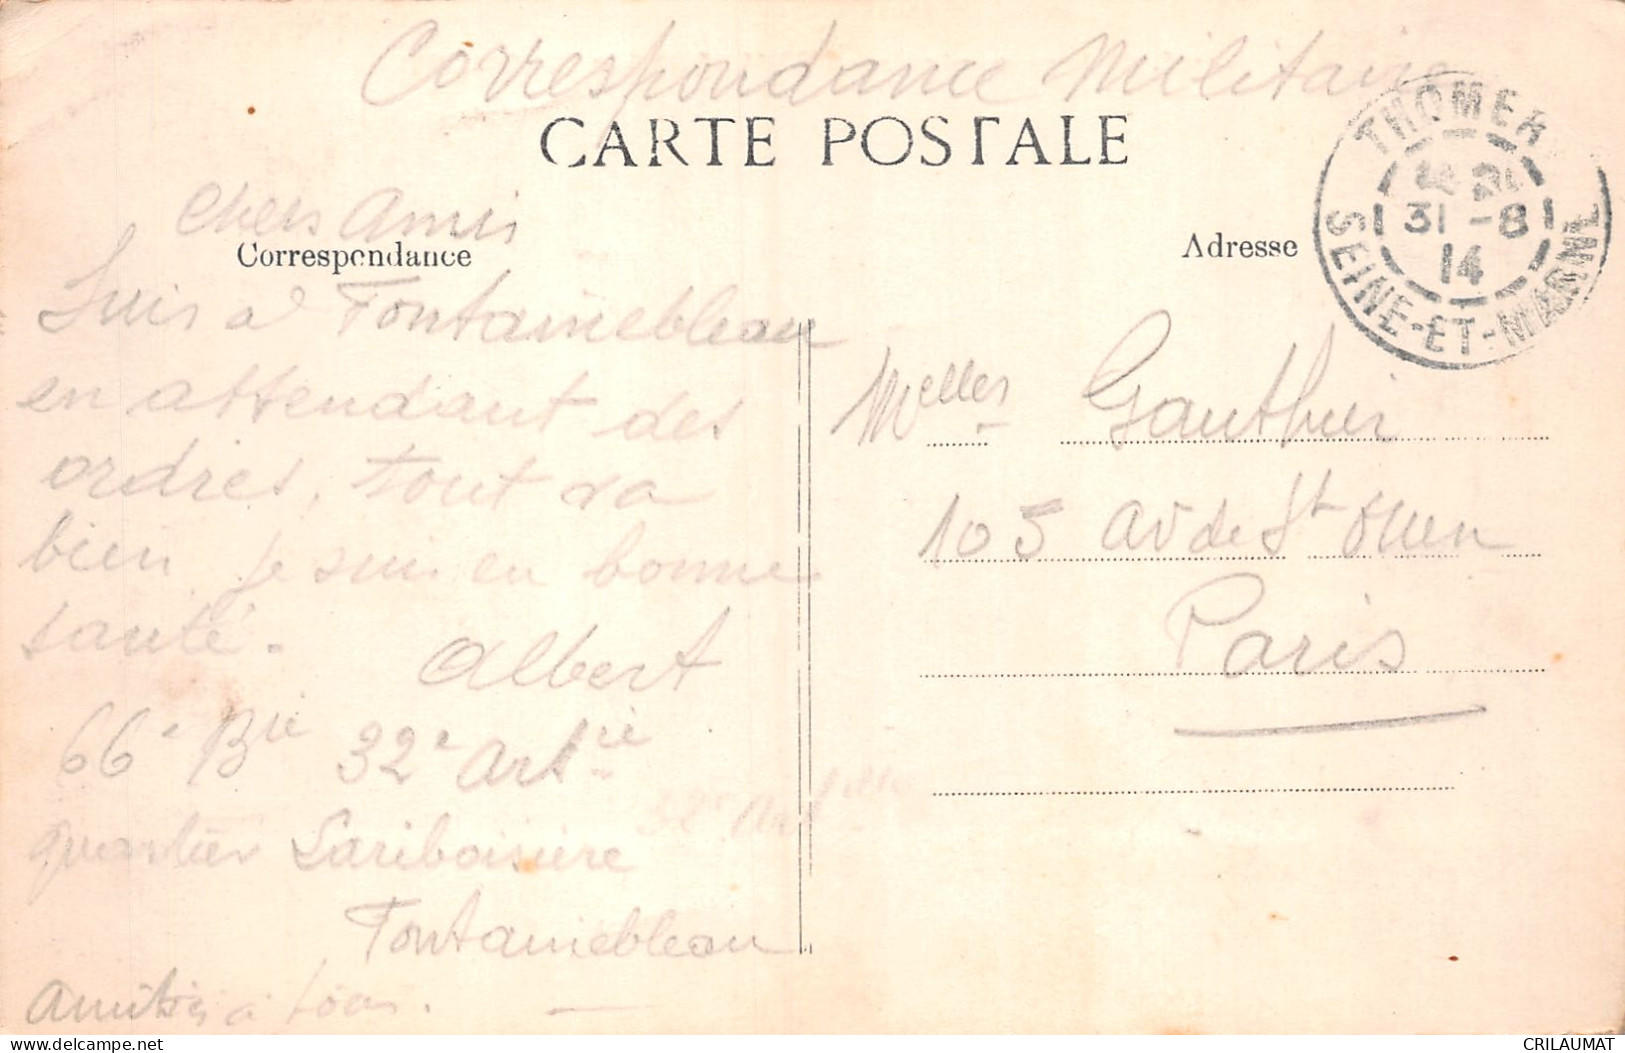 Correspondance Militaire
CARTE POSTALE
THOMERY
31 -8
14
SEINE-ET-MARNE
Chers Amis
Correspondance
Adresse
Suis à Fontainebleau
en attendant des
ordres, tout va
bien je suis en bonne
santé.
Albert
66e Brie 32e Artie
32e Art
quartier Lariboisière
Fontainebleau
Amitiés à tous.
Melles Gauthier
105 av de St Ouen
Paris
CRILAUMAT